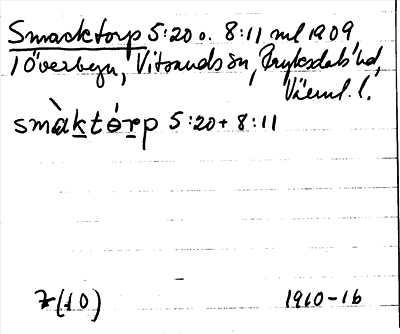 Smacktorp 5:20 o. 8:11 ml 1909
i Överbyn, Vitsands sn, Fryksdals hd,
Värml. l.
smàktórp 5:20 + 8:11
7(10) 1910-16